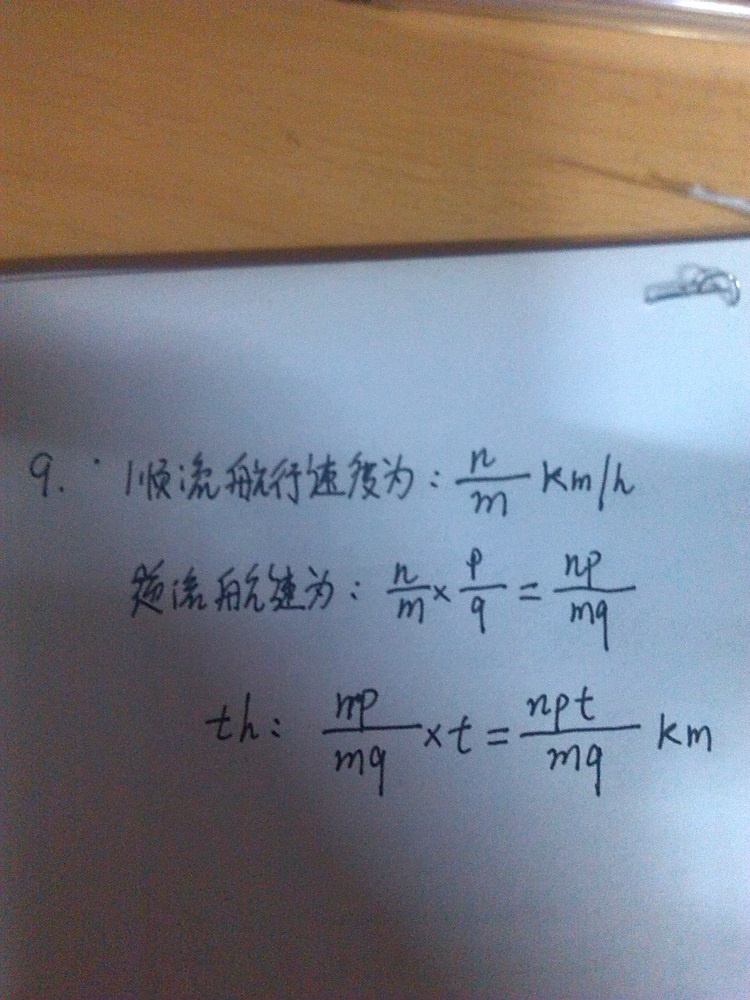 9. 顺流航行速度为: n/m km/h
逆流航速为: n/m × p/q = np/mq
th: np/mq × t = npt/mq km